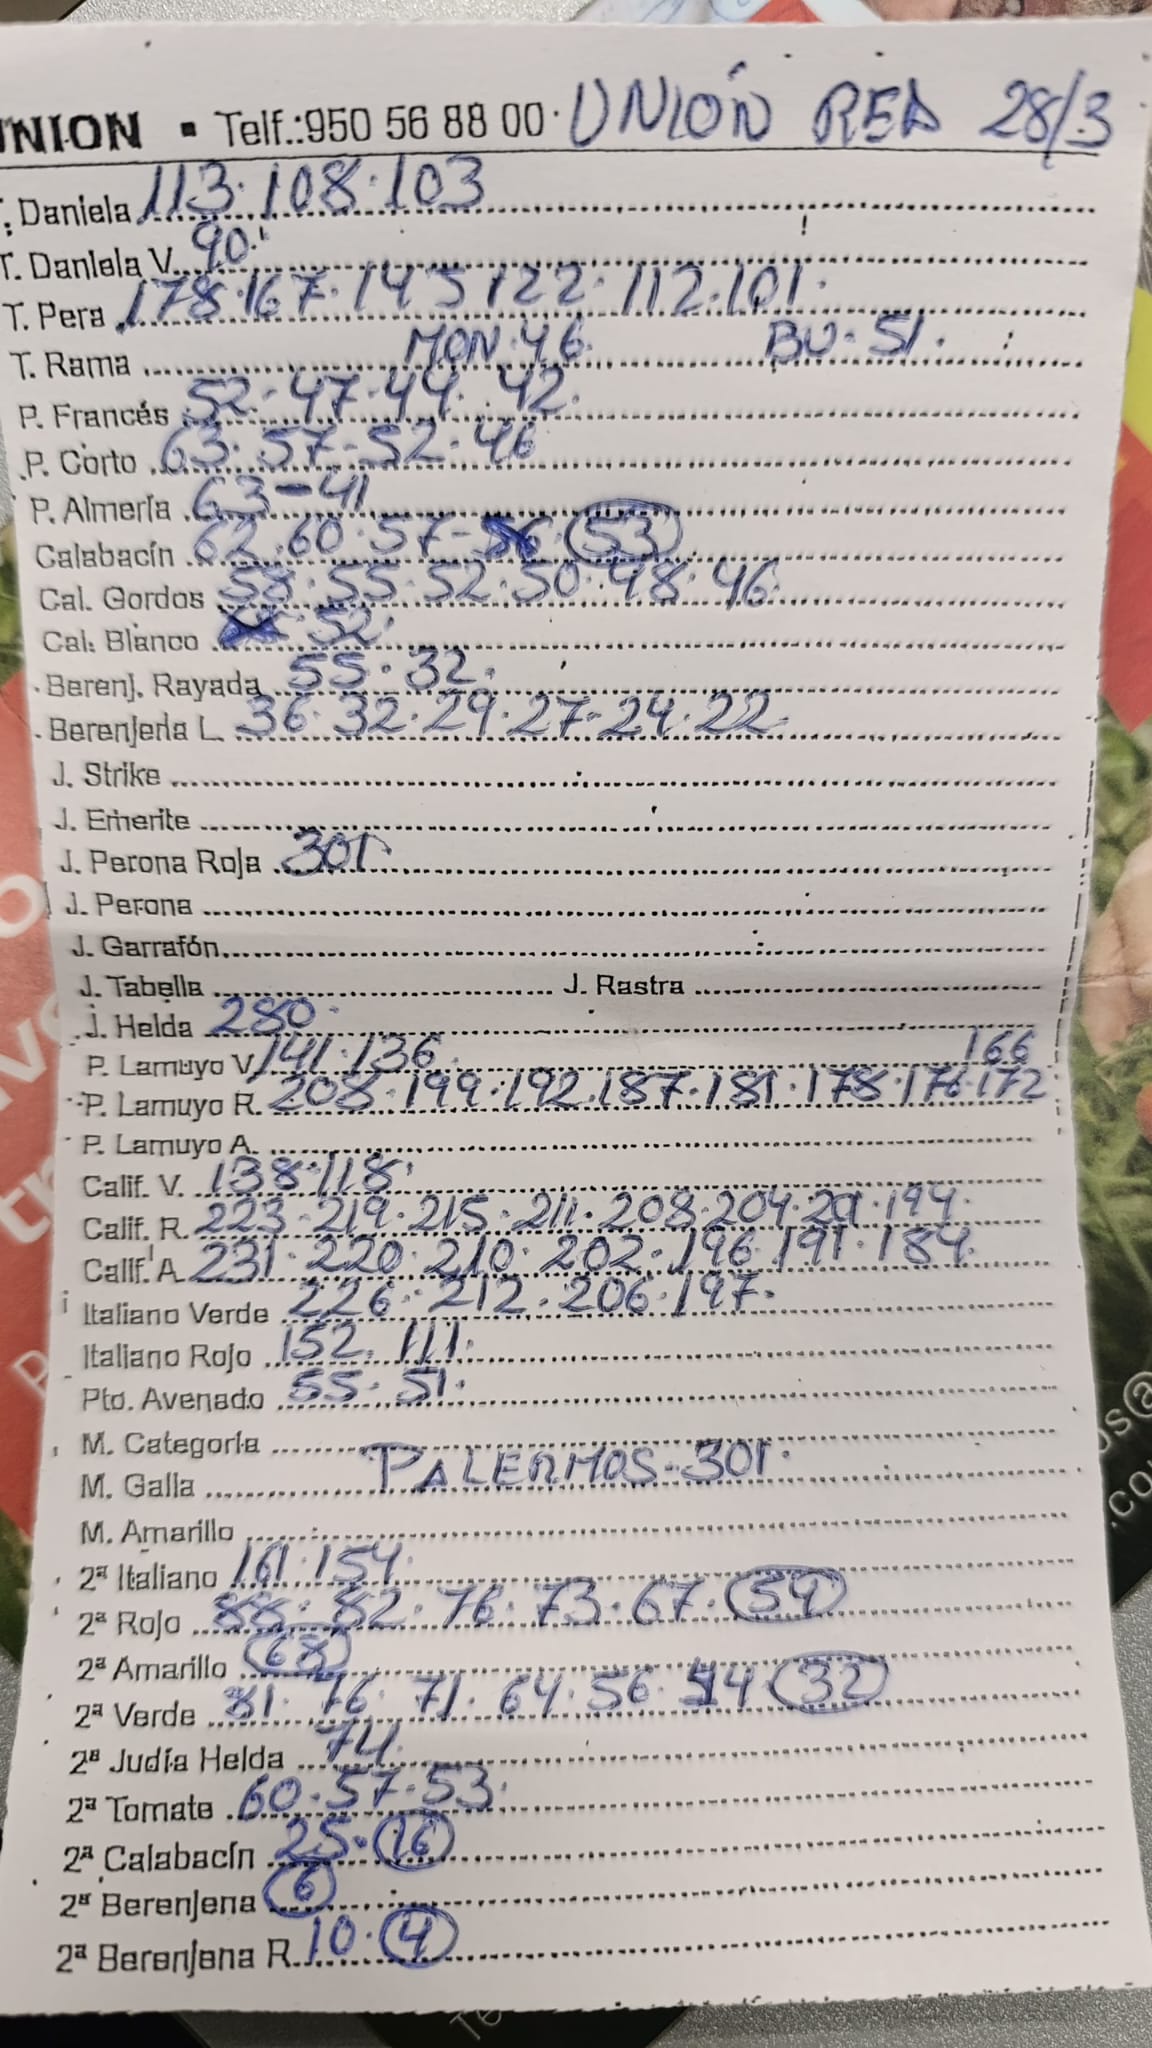 UNION • Telf.:950 56 88 00 · UNIÓN RED 28/3
T. Daniela 113·108·103
T. Daniela V. 90.
T. Pera 178·167·145 122·112·101·
T. Rama MON·46. BU·51.
P. Francés 52·47·44·42.
P. Corto 63·57-52·46
P. Almería 63-41
Calabacín 62·60·57- 53
Cal. Gordos 58·55·52·50·48·46
Cal. Blanco 52.
Berenj. Rayada 55·32.
Berenjena L. 36·32·29·27-24·22
J. Strike
J. Emerite
J. Perona Roja 301
J. Perona
J. Garrafón
J. Tabella J. Rastra
J. Helda 280.
P. Lamuyo V. 141·136. 166
P. Lamuyo R. 208·199·192·187·181·178·176·172
P. Lamuyo A.
Calif. V. 138·118.
Calif. R. 223·219·215·211·208·204·201·194.
Calif. A. 231·220·210·202·196·191·184.
Italiano Verde 226·212·206·197.
Italiano Rojo 152·111.
Pto. Avenado 55·51.
M. Categoría
M. Galla PALERMOS-301·
M. Amarillo
2ª Italiano 161·154.
2ª Rojo 88·82·76·73·67·59
2ª Amarillo 68
2ª Verde 81·76·71·64·56· 32
2ª Judía Helda 74.
2ª Tomate 60·57·53.
2ª Calabacín 25·16
2ª Berenjena 6
2ª Berenjena R. 10·4